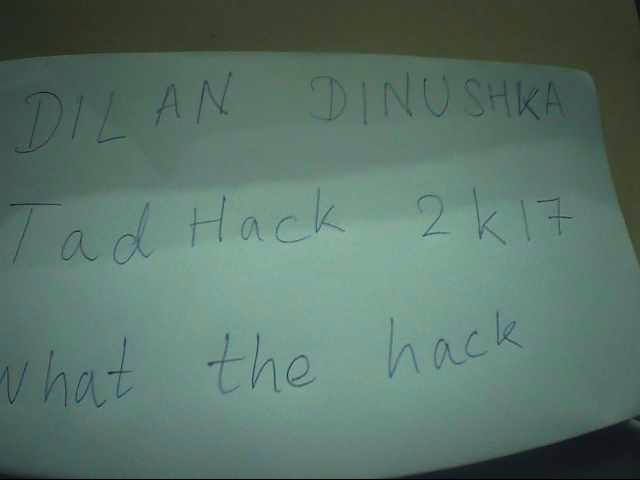 DILAN DINUSHKA
Tad Hack 2k17
what the hack